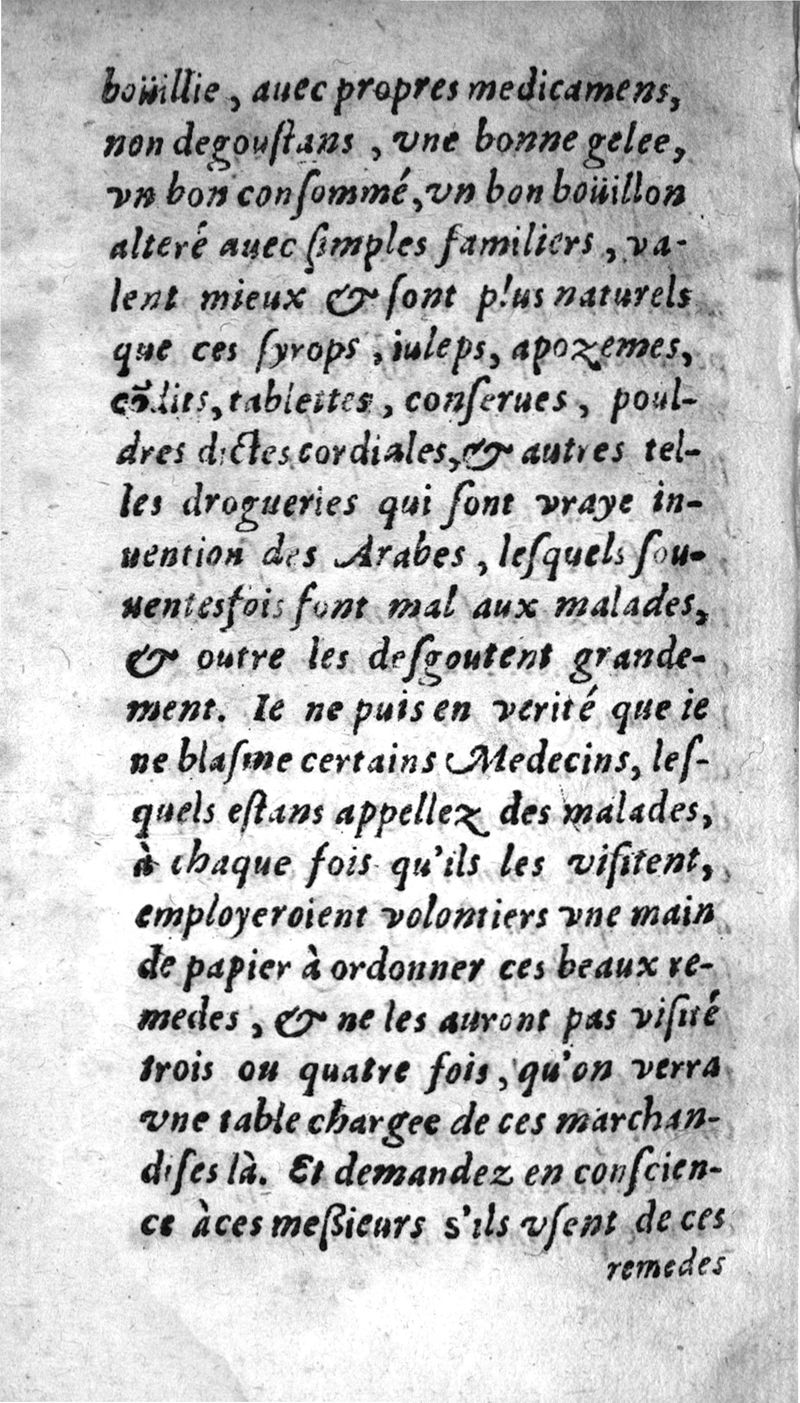 boüillie, auec propres medicamens,
non degouſtans, vne bonne gelee,
vn bon conſommé, vn bon boüillon
alteré auec ſimples familiers, va-
lent mieux & ſont plus naturels
que ces ſyrops, iuleps, apozemes,
cõdits, tablettes, conſerues, poul-
dres dictes cordiales, & autres tel-
les drogueries qui ſont vraye in-
uention des Arabes, leſquels ſou-
uentesfois font mal aux malades,
& outre les deſgoutent grande-
ment. Ie ne puis en verité que ie
ne blaſme certains Medecins, leſ-
quels eſtans appellez des malades,
à chaque fois qu'ils les viſitent,
employeroient volontiers vne main
de papier à ordonner ces beaux re-
medes, & ne les auront pas viſité
trois ou quatre fois, qu'on verra
vne table chargee de ces marchan-
diſes là. Et demandez en conſcien-
ce à ces meßieurs s'ils vſent de ces
remedes